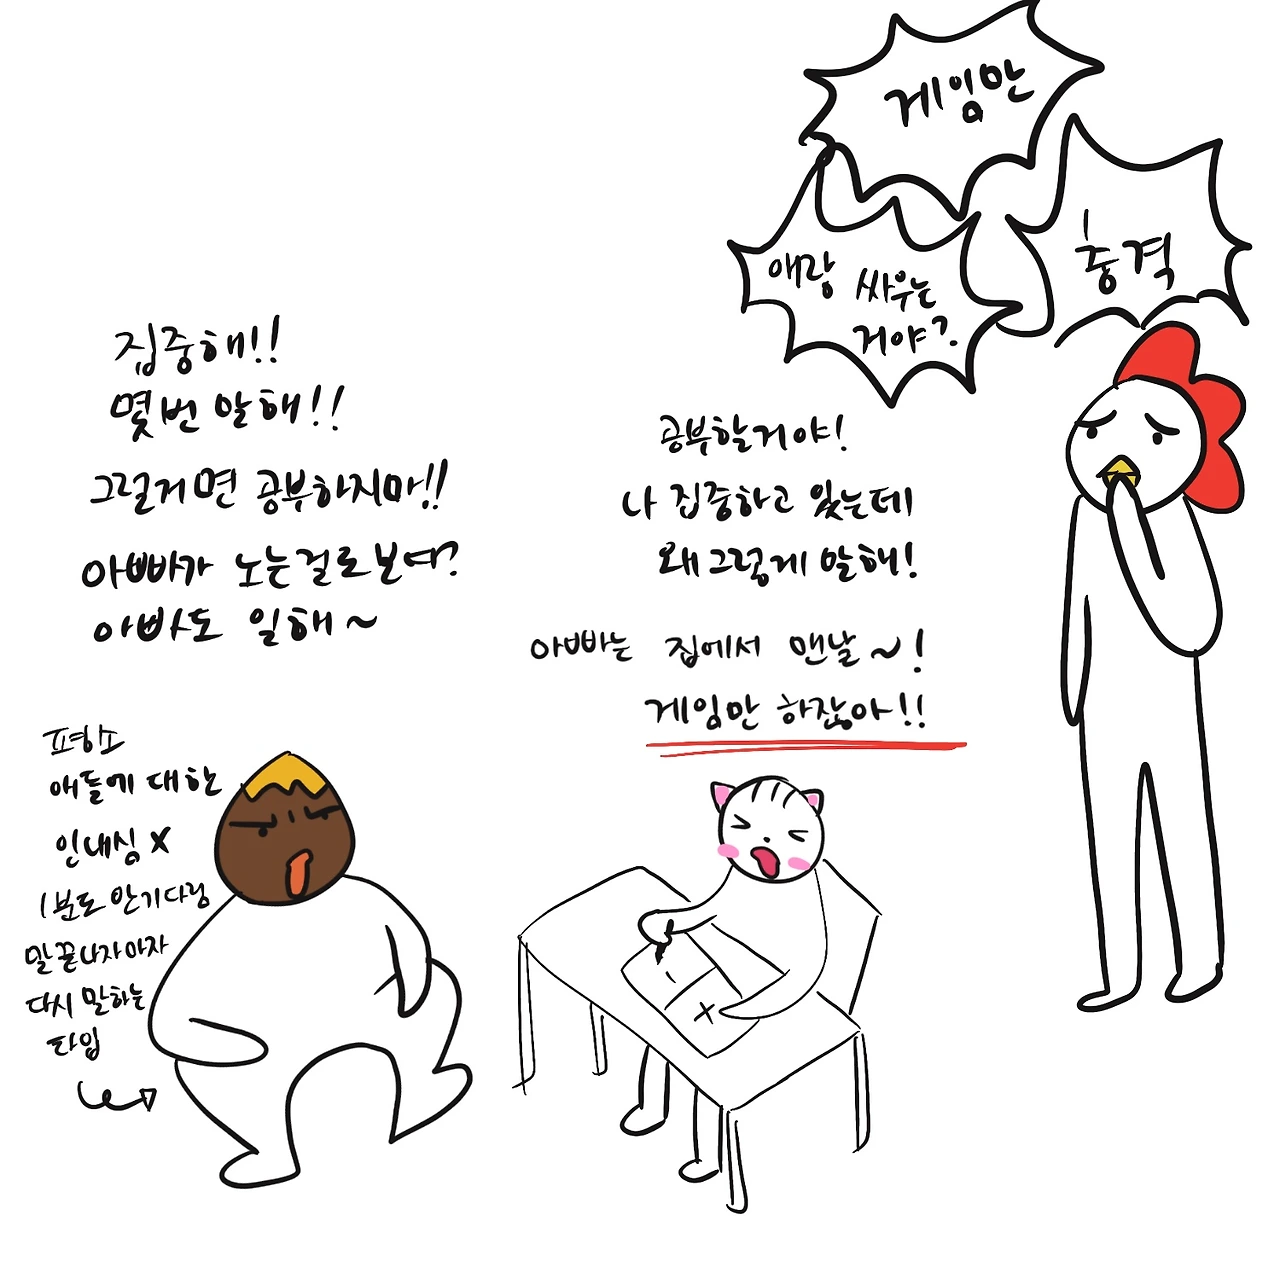 게임만
충격
애랑 싸우는
거야?
집중해!!
몇번 말해!!
그럴거면 공부하지마!!
아빠가 노는걸로보여?
아빠도 일해~
공부할거야!
나 집중하고 있는데
왜그렇게 말해!
아빠는 집에서 맨날~!
게임만 하잖아!!
평상소
애들에 대한
인내심 X
1분도 안기다령
말끝나자마자
다시 말하는
타입